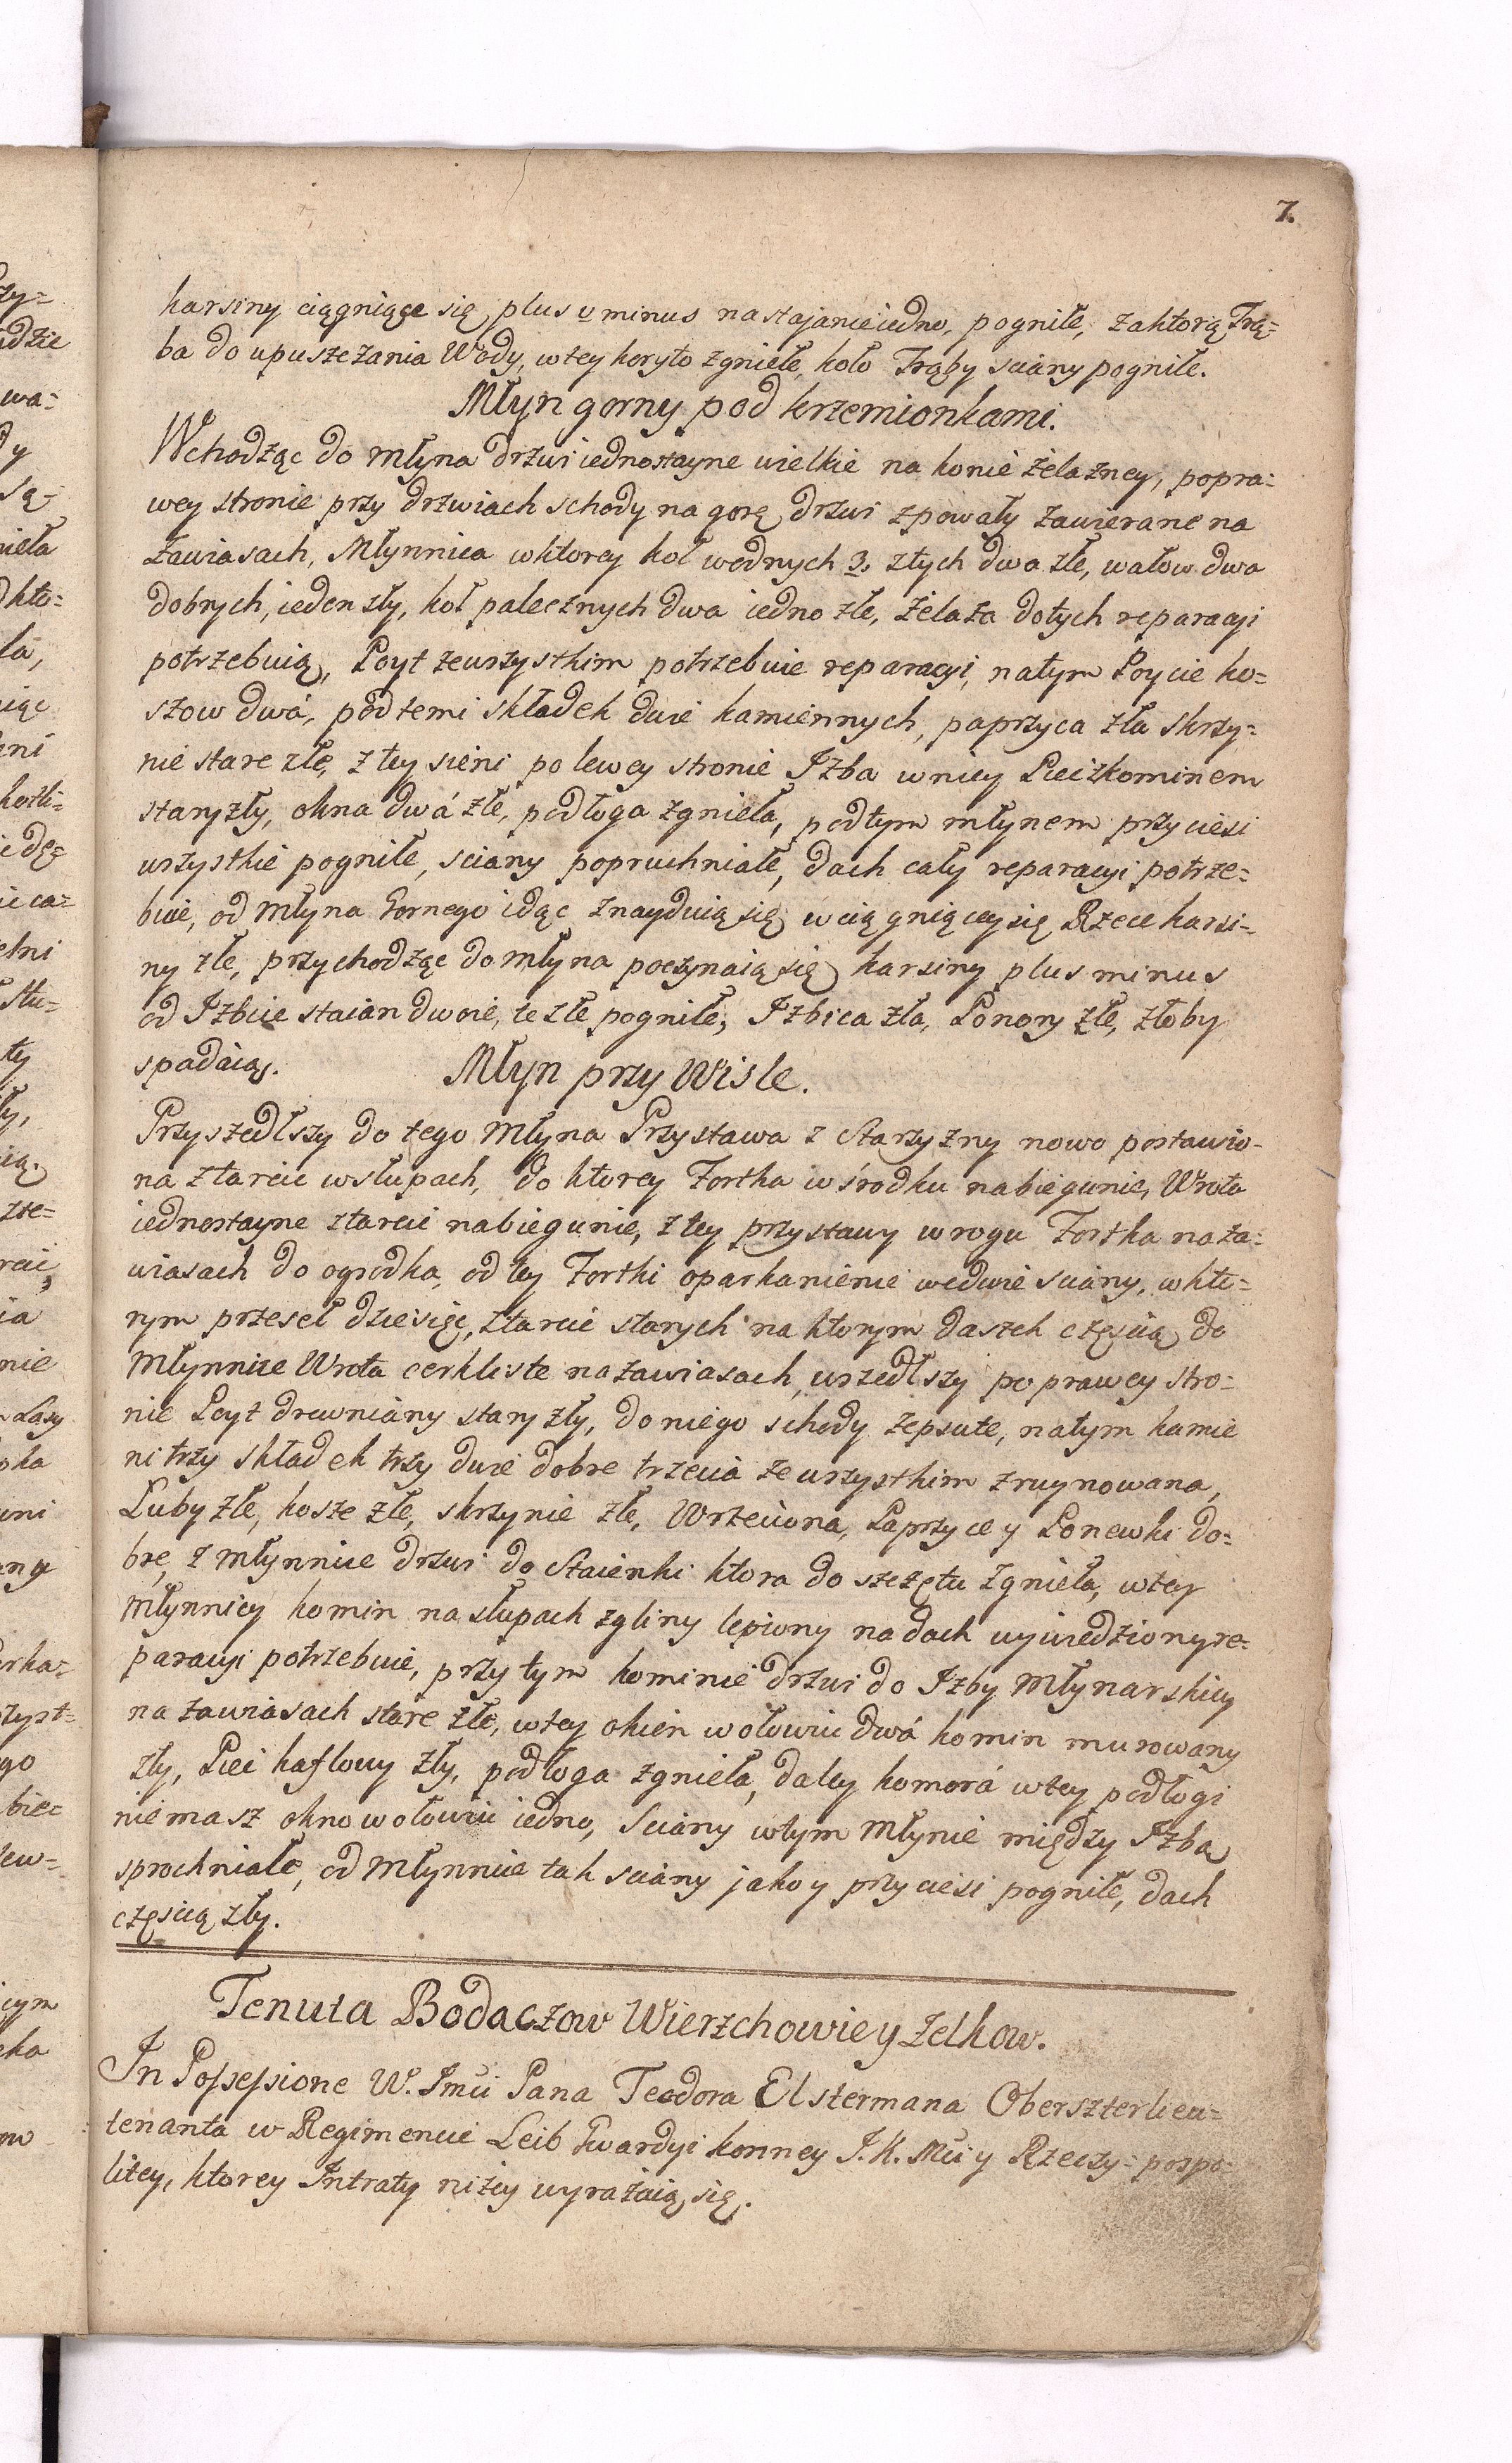 7.
karsiny ciągniące się, plus v minus na stajanie iedno, pogniłe, zaktorą Trą=
ba do upuszczania Wody, w tey koryto zgniełe, koło Trąby sciany pogniłe.
Młyn gorny pod krzemionkami.
Wchodząc do Młyna drzwi iednostayne wielkie na konie żelazney, po pra=
wey stronie przy drzwiach schody na gorę drzwi z powały zawierane na
zawiasach, Młynnica w ktorey koł wodnych 3. złych dwa złe, wałow dwa
dobrych, ieden zły, koł palecznych dwa iedno złe, żelaza do tych reparacyi
potrzebuią, Poyt ze wszystkim potrzebuie reparacyi, na tym Poycie ko=
szow dwá, pod temi składek dwie kamiennych, paprzyca zła skrzy=
nie stare złe, z tey sieni po lewey stronie Izba w niey Piec z kominem
stary zły, okna dwá złe, podłoga zgnieła, pod tym młynem przyciesi
wszystkie pogniłe, sciany popruchniałe, dach cały reparacyi potrze=
buie, od Młyna Gornego idąc znayduią się w ciągniącey się Rzece karsi=
ny złe, przychodząc do młyna poczynaią się karsiny plus minus
od Izbice staian dwoie, te złe pogniłe, Izbica zła, Ponory złe, złoby
spadáią. Młyn przy Wisle.
Przyszedłszy do tego Młyna Przystawa z Starzyzny nowo postawio=
na z tarcic w słupach, do ktorey Fortka w środku na biegunie, Wrota
iednostayne z tarcic na biegunie, z tey przystawy w rogu Fortka na za=
wiasach do ogrodka, od tey Fortki oparkanienie we dwie sciany, w kto=
rym przeseł dziesięc, z tarcic starych na ktorym daszek częscią do
Młynnice Wrota cerkliste na zawiasach, wszedłszy po prawey stro=
nie Poyt drewniany stary zły, do niego schody zepsute, na tym kamie
ni trzy składek trzy dwie dobre trzecia ze wszystkim zruynowana,
Luby złe, kosze złe, skrzynie złe, Wrzeciona, Paprzyce y Ponewki do=
bre, z Młynnice drzwi do Staienki ktora do szczętu zgnieła, w tey
Młynnicy komin na słupach z gliny lepiony na dach wywiedziony re=
paracyi potrzebuie, przy tym kominie drzwi do Izby Młynarskiey
na zawiasach stare złe, w tey okien w ołowiu dwá komin murowany
zły, Piec kaflowy zły, podłoga zgnieła, daley komorá w tey podłogi
nie masz okno w ołowiu iedno, Sciany w tym Młynie między Izbą
sprochniałe, od Młynnice tak sciany jako y przyciesi pogniłe, dach
częscią zły.
Tenuta Bodaczow Wierzchowie y Zelkow.
In Possessione W. Jmci Pana Teodora Elstermana Oberszterlieu=
tenanta w Regimencie Leib Gwardyi konney J. K. Mci y Rzeczy=pospo=
litey, ktorey Intraty niżey wyrażaią się.